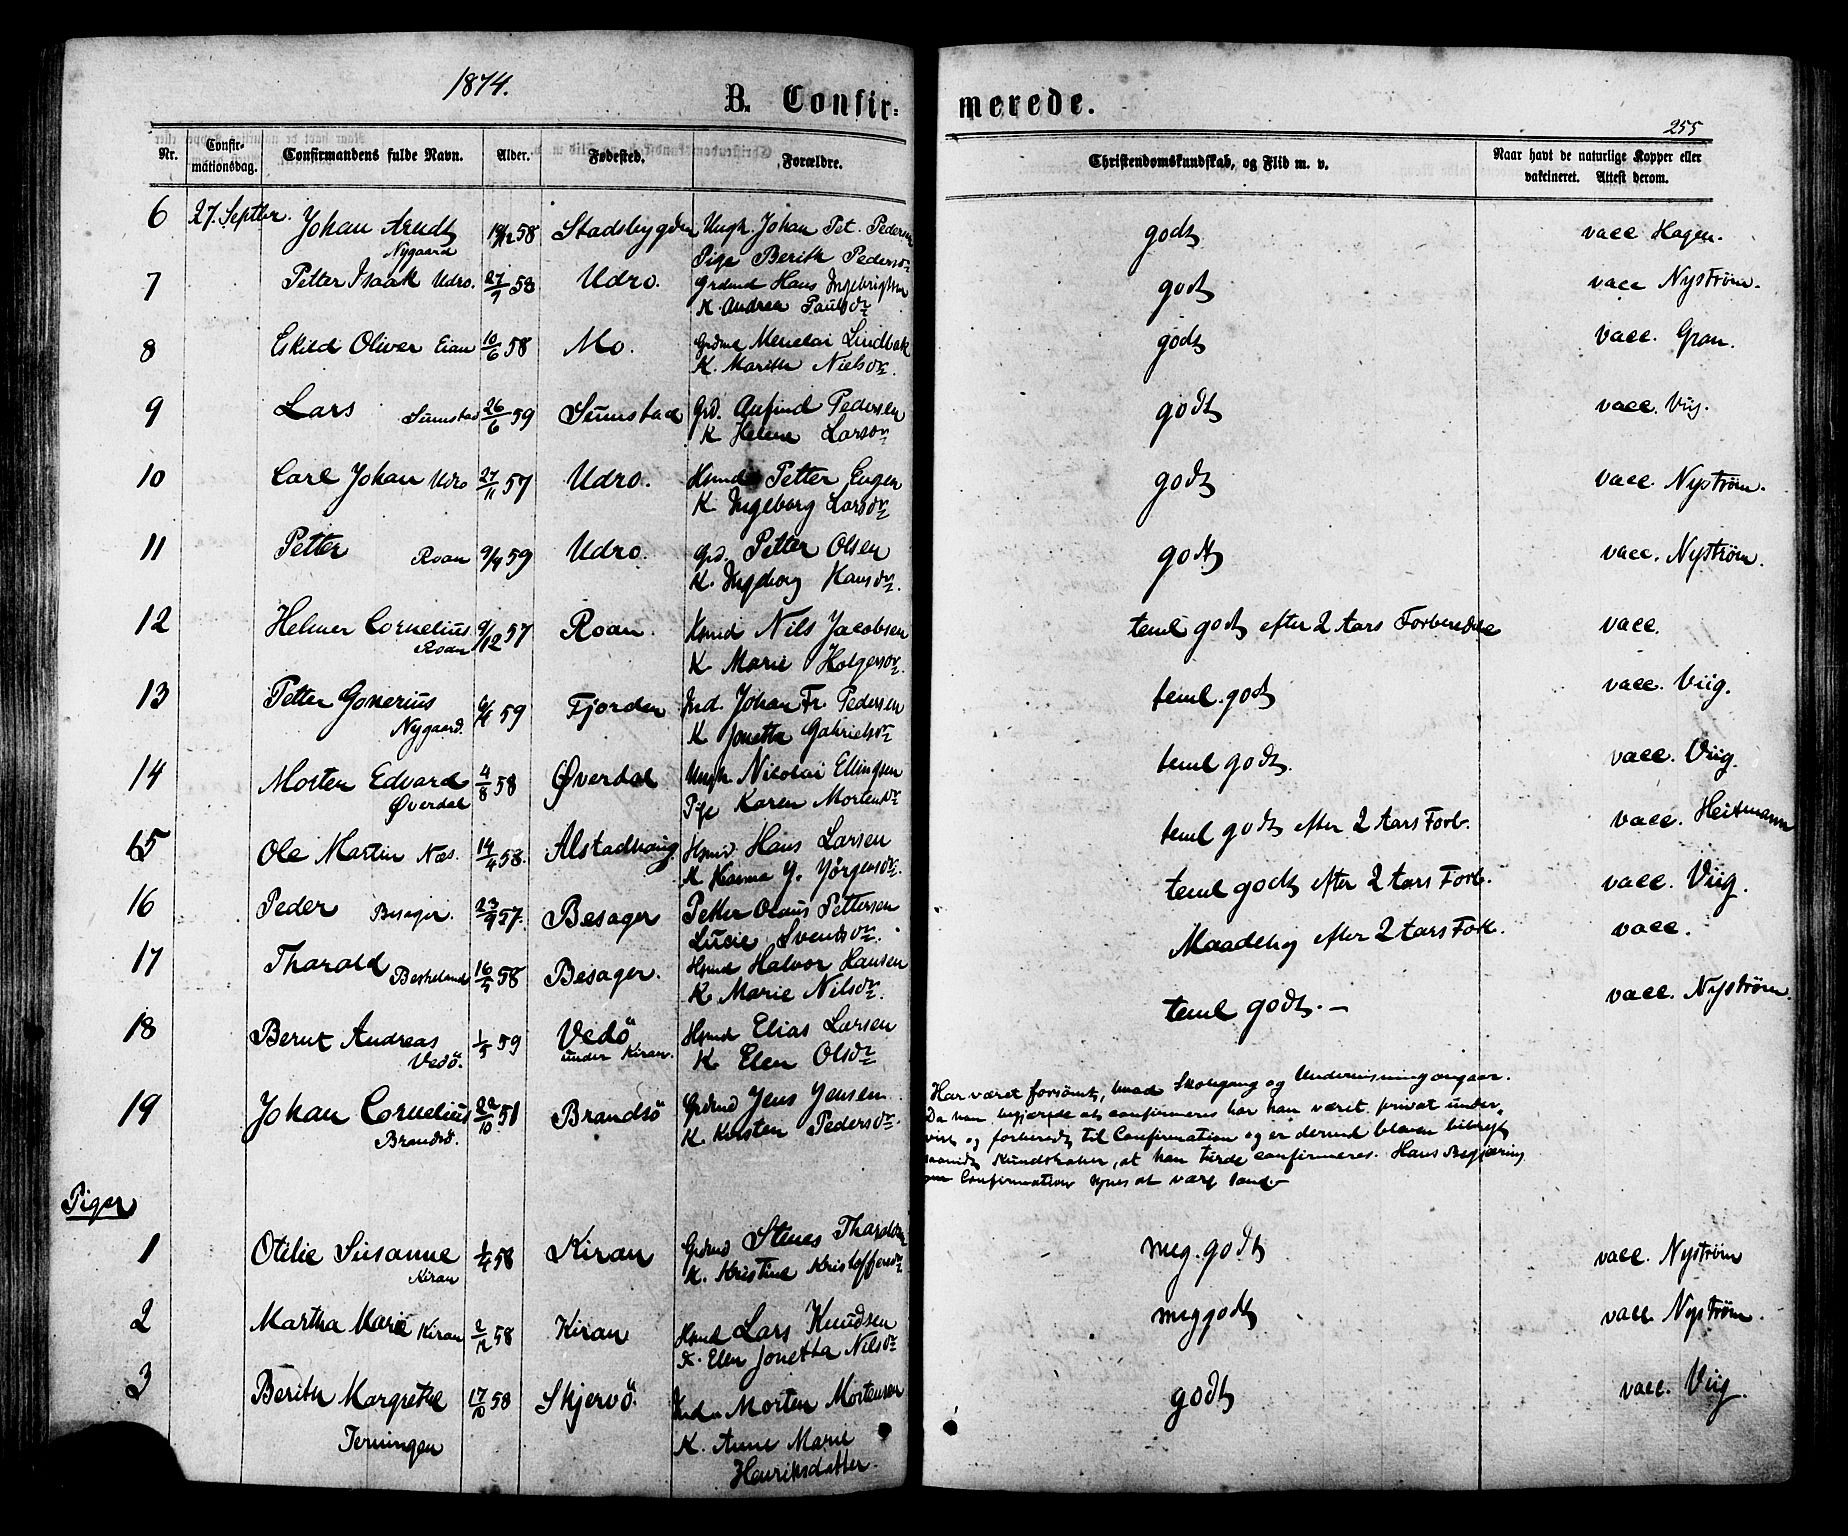 1874.
B. Confirmerede.
255
Nr. Confirmationsdag. Confirmandens fulde Navn. Alder. Fødested. Forældre. Christendomskundskab, og Flid m. v. Naar havt de naturlige Kopper eller vakcineret. Attest derom.
6 27. Septbr. Johan Arndt 58 Stadsbygden Ungk. Johan Pet. Pedersen godt vacc Hagen.
Nygaard Pige Berith Pedersdr
7 Petter Isaak Udro. 27/7 58 Udro. Grdmd Hans Ingebrigtsen godt vacc Nystrøm.
K Andrea Paulsdr
8 Eskild Oliver Eian 10/6 58 Mo. Grdmd Menelai Lindbak godt vacc. Gran.
K. Marith Nielsdr.
9 Lars Sumstad 26/6 59 Sumstad Grd. Anfind Pedersen godt vacc. Viig.
K Helene Larsdr
10 Carl Johan Udro 27/11 57 Udro. Hsmd Petter Eugen godt vacc. Nystrøm.
K Ingeborg Larsdr
11 Petter Roan 9/4 59 Udro. Grd. Petter Olsen godt vacc. Nystrøm.
K. Ingeborg Hansdr.
12 Helmer Cornelius 9/12 57 Roan. Hsmd Nils Jacobsen teml godt efter 2 Aars Forberedelse vacc.
Roan K Marie Holgersdr.
13 Petter Gonerius 59 Fjorden Ind. Johan Fr. Pedersen teml. godt vacc. Viig.
Nygaard. K Jonetta Gabrielsdr
14 Morten Edvard 4/8 58 Øverdal Ungk. Nicolai Ellingsen teml godt. vacc. Viig.
Øverdal Pige Karen Mortensdr
15 Ole Martin Næs. 14/4 58. Alstadhaug Hsmd Hans Larsen teml godt efter 2 Aars Forb. vacc. Heitmann
K Hanna J. Jørgensdr.
16 Peder Besager. 23/9 57. Besager Petter Olaus Pettersen teml godt efter 2 Aars Forb. vacc. Viig.
Lucie Svendsdr.
17 Tharald Beskeland 16/5 58 Besager. Hsmd Halvor Hansen Maadelig efter 2 Aars Forb. vacc.
K. Marie Nilsdr.
18 Bernt Andreas 1/5 59 Vedö Hsmd Elias Larsen teml godt. — vacc. Nystrøm.
Vedö. under Kiran. K Elen Olsdr
19 Johan Cornelius 22/10 51 Brandsö Grdmd Jens Jensen
Brandsö. K Kirsten Pedersdr.
Har været forsömt, hvad Skolegang og Undervisning angaar.
Da han begjærede at confirmeres har han været privat under-
vist og forberedt til Confirmation og er derved bleven bibragt
saanidt Kundskaber, at han turde confirmeres. Hans Begjæring
om Confirmation synes at være sand.
Piger
1 Otilie Susanne 1/4 58 Kiran Grdmd Stenes Tharaldsen meg. godt vacc. Nystrøm
Kiran K. Kristine Kristoffersdr
2 Martha Marie Kiran 2/12 58 Kiran Hsmd Lars Knudsen meg godt vacc. Nystrøm.
K. Elen Jonetta Nilsdr
3 Berith Margrethe 17/10 58 Skjervö. Morten Mortensen godt vacc. Viig.
Terningen K. Anne Marie
Henriksdatter.